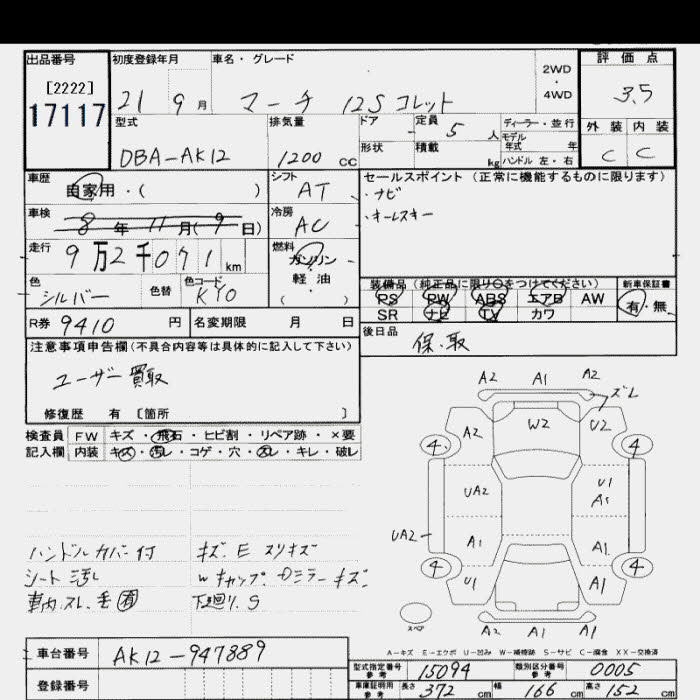 出品番号 初度登録年月 車名・グレード 2WD・4WD 評価点
[2222]
17117 21 9月 マーチ 12S コレット 3.5
型式 排気量 ドア 定員 5人 ディーラー・並行 外装 内装
モデル年式 年
DBA-AK12 1200 CC 形状 積載 kg ハンドル 左・右 C C
車歴 自家用・( ) シフト AT セールスポイント (正常に機能するものに限ります)
・ナビ
車検 8年11月(9日) 冷房 AC ・キーレスキー
走行 9万2千071km 燃料 ガソリン 軽油 ( )
色 シルバー 色替 色コード KY0 装備品 (純正品に限り○をつけてください) 新車保証書
PS PW ABS エアB AW 有・無
SR ナビ TV カワ
R券 9410 円 名変期限 月 日 後日品 保.取
注意事項申告欄 (不具合内容等は具体的に記入して下さい)
ユーザー買取
修復歴 有 [箇所 ]
検査員 FW キズ・飛石・ヒビ割・リペア跡・×要
記入欄 内装 キズ・汚レ・コゲ・穴・スレ・キレ・破レ
A2 A1 A2
ズレ
A2 W2 U2
4 4
UA2 U1
A1 A1
UA2
A1 A1
4 4
U1 A1
スペア
A2 A1 A1
ハンドルカバー付 キズ.E スリキズ
シート汚レ W キャップ.Dミラーキズ
車内.スレ.毛有 下廻り.S
A-キズ E-エクボ U-凹み W-補修跡 S-サビ C-腐食 XX-交換済
車台番号 AK12-947889
型式指定番号 参考 15094 類別区分番号 参考 0005
登録番号 車庫証明用 参考 長さ 372 cm 幅 166 cm 高さ 152 cm